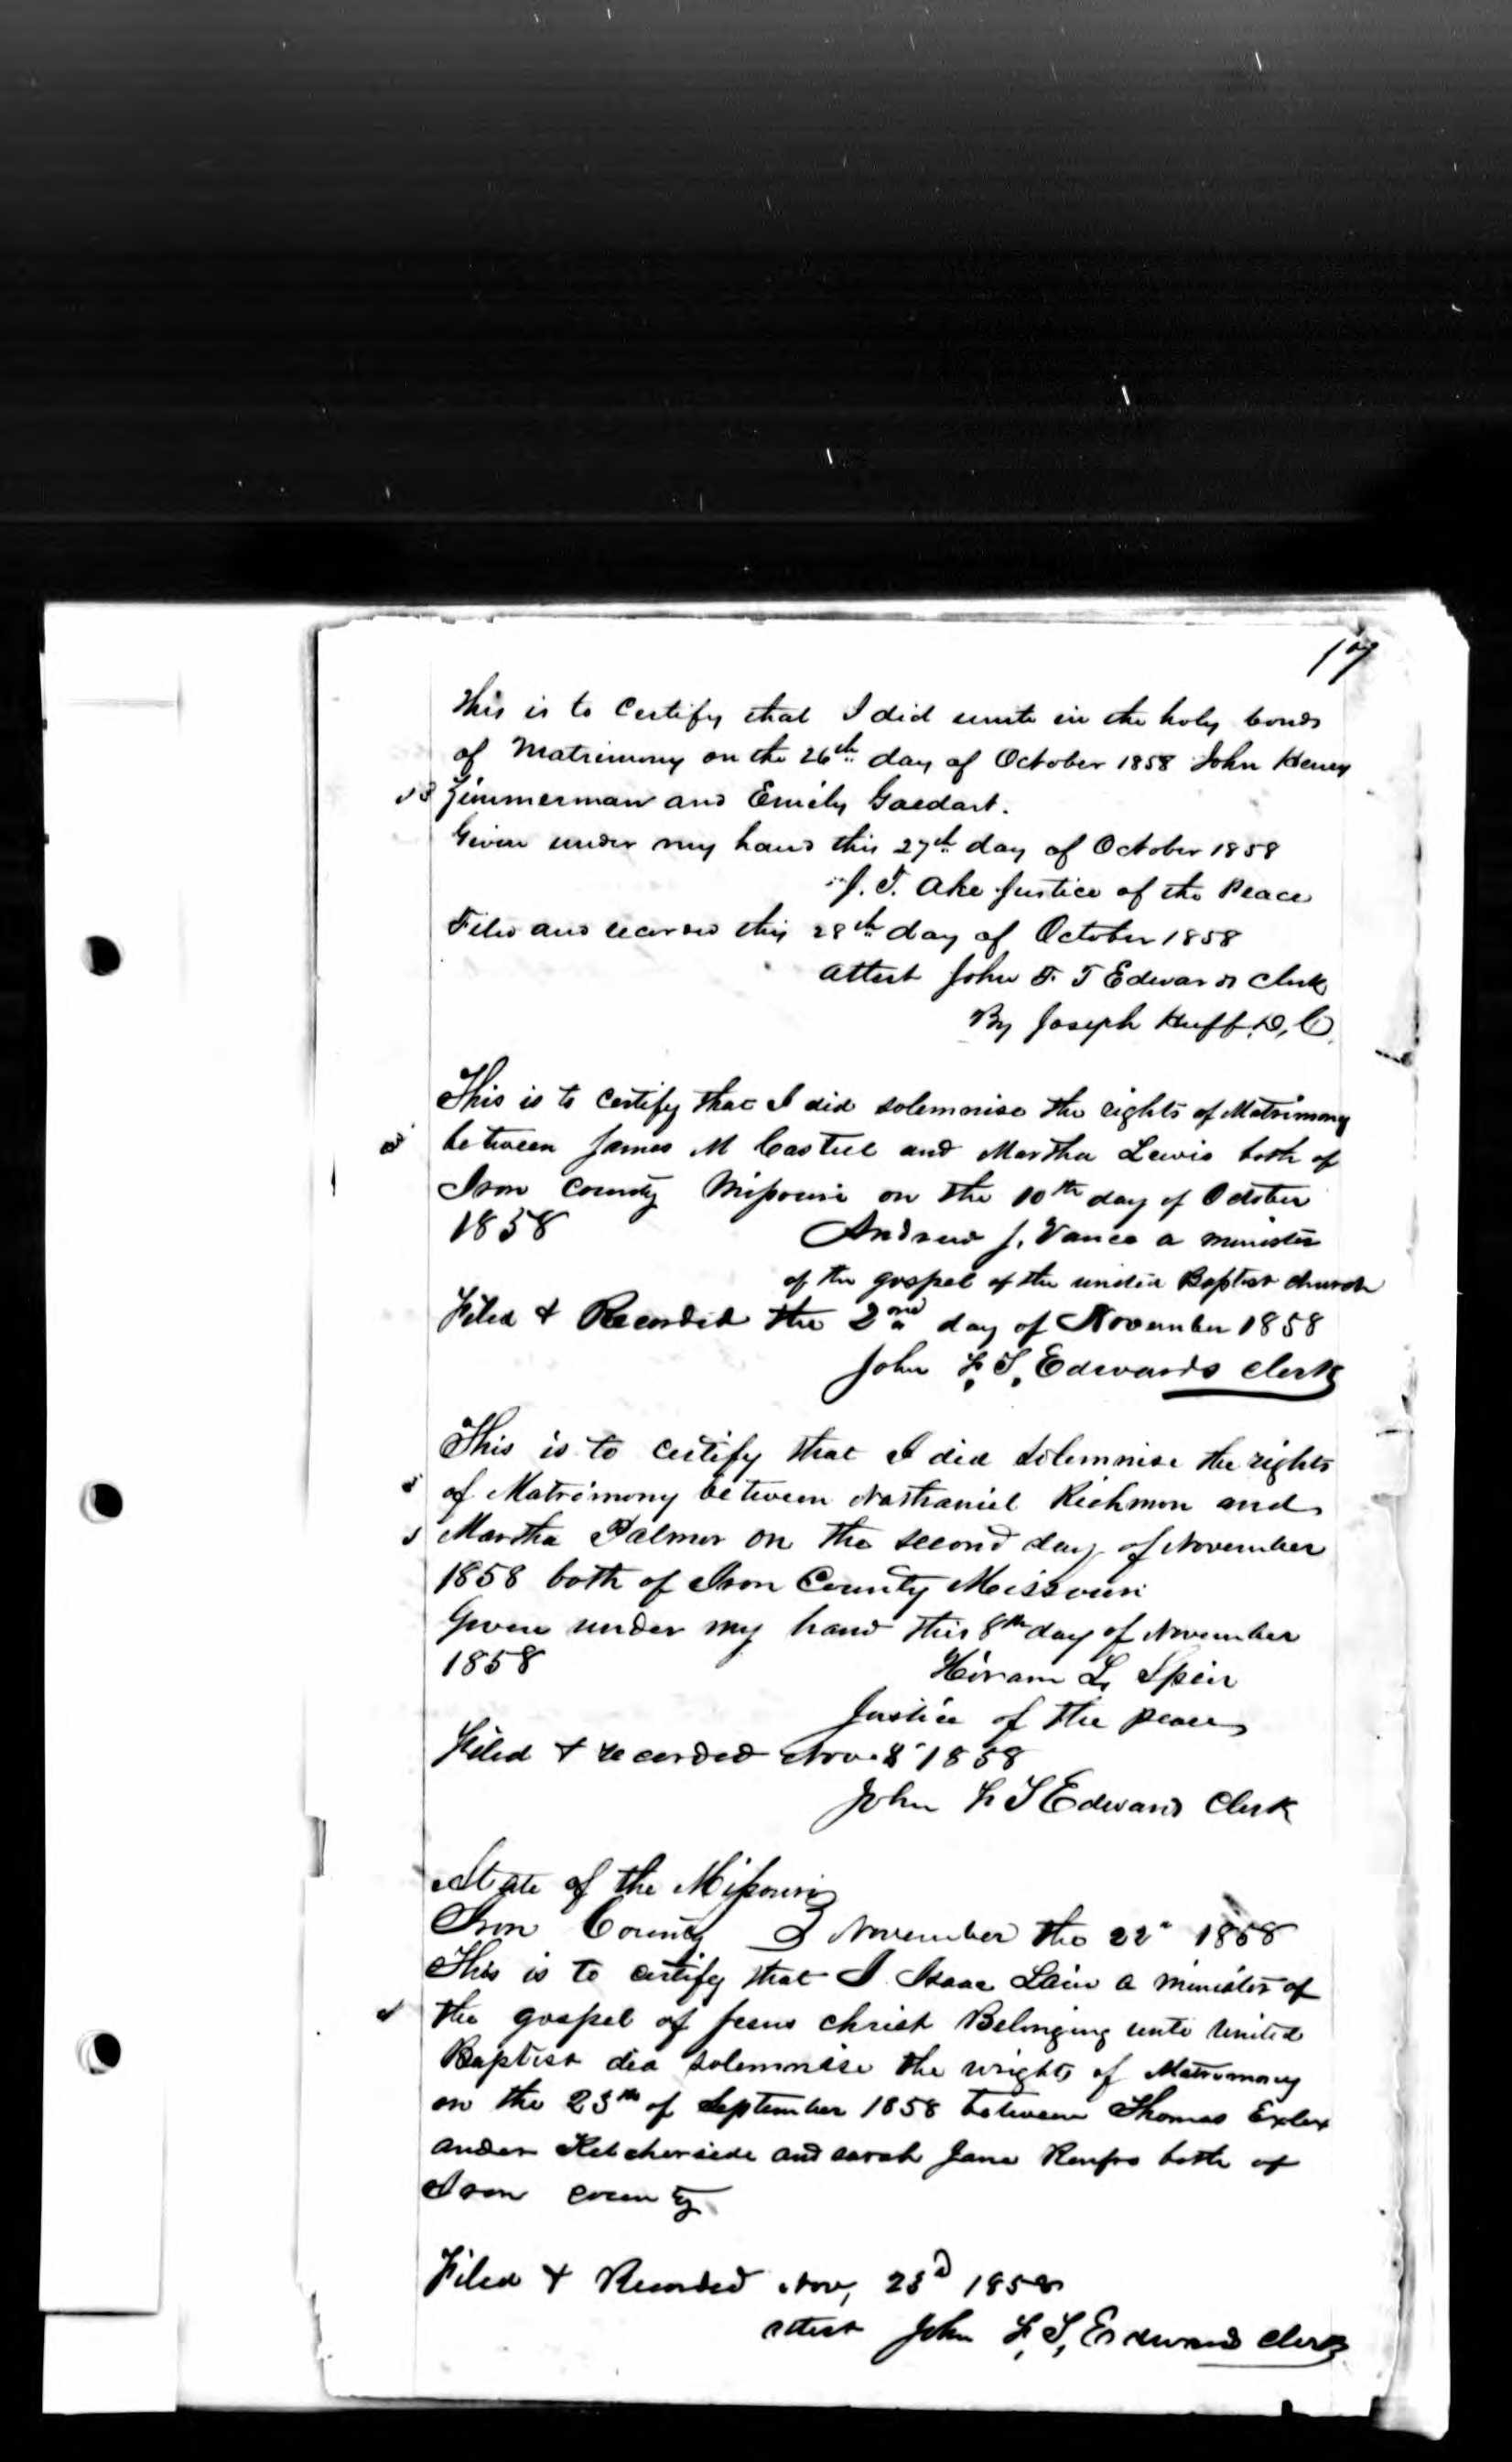 17
This is to Certify that I did unite in the holy bonds
of Matrimony on the 26th day of October 1858 John Henry
Zimmerman and Emily Gaedart.
Given under my hand this 27th day of October 1858
J. T. Ake Justice of the Peace
Filed and recorded this 28th day of October 1858
attest John F. T Edwards Clerk
By Joseph Huff D, C.
This is to Certify that I did solemnise the rights of Matrimony
between James M Casteel and Martha Lewis both of
Iron County Missouri on the 10th day of October
1858 Andrew J. Vance a minister
of the gospel of the united Baptist church
Filed & Recorded the 2nd day of November 1858
John F. T. Edwards Clerk
This is to certify that I did Solemnise the rights
of Matrimony between Nathaniel Richmon and
Martha Palmer on the second day of November
1858 both of Iron County Missouri
Given under my hand this 8th day of November
1858 Hiram L, Speir
Justice of the peace
Filed & recorded Nov. 8" 1858
John F T Edwards Clerk
State of the Missouri
Iron County } November the 22" 1858
This is to certify that I Isaac Lain a minister of
the gospel of Jesus Christ Belonging unto United
Baptist did solemnise the wrights of Matrimony
on the 23th of September 1858 between Thomas Exlex
ander Ketcherside and sarah Jane Renfro both of
Iron County
Filed & Recorded Nov, 23d 1858
attest John F, T, Edwards Clerk